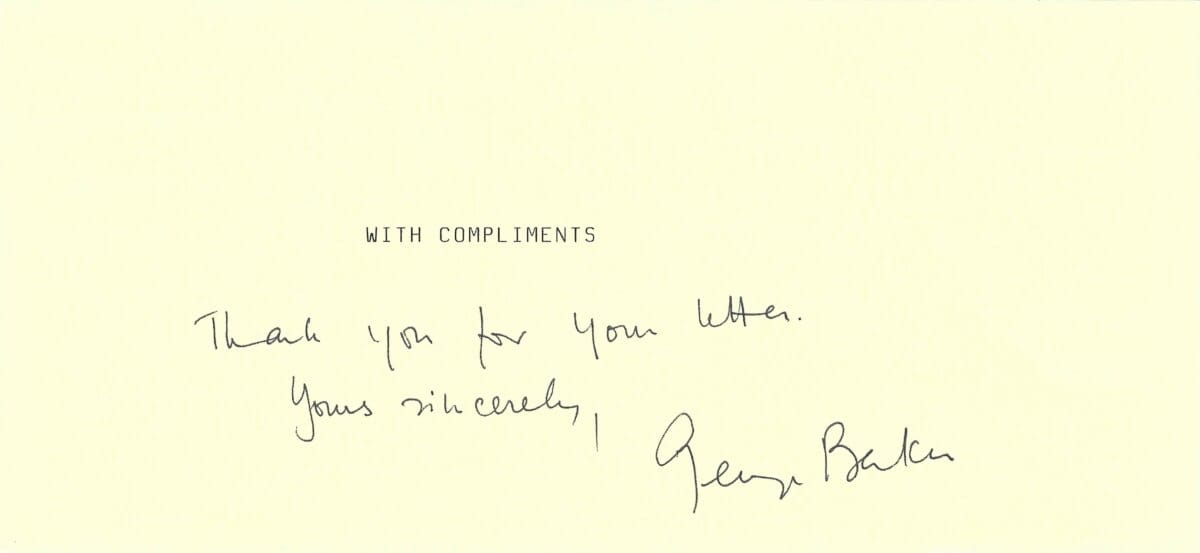 WITH COMPLIMENTS
Thank you for your letter.
Yours sincerely,
George Baker